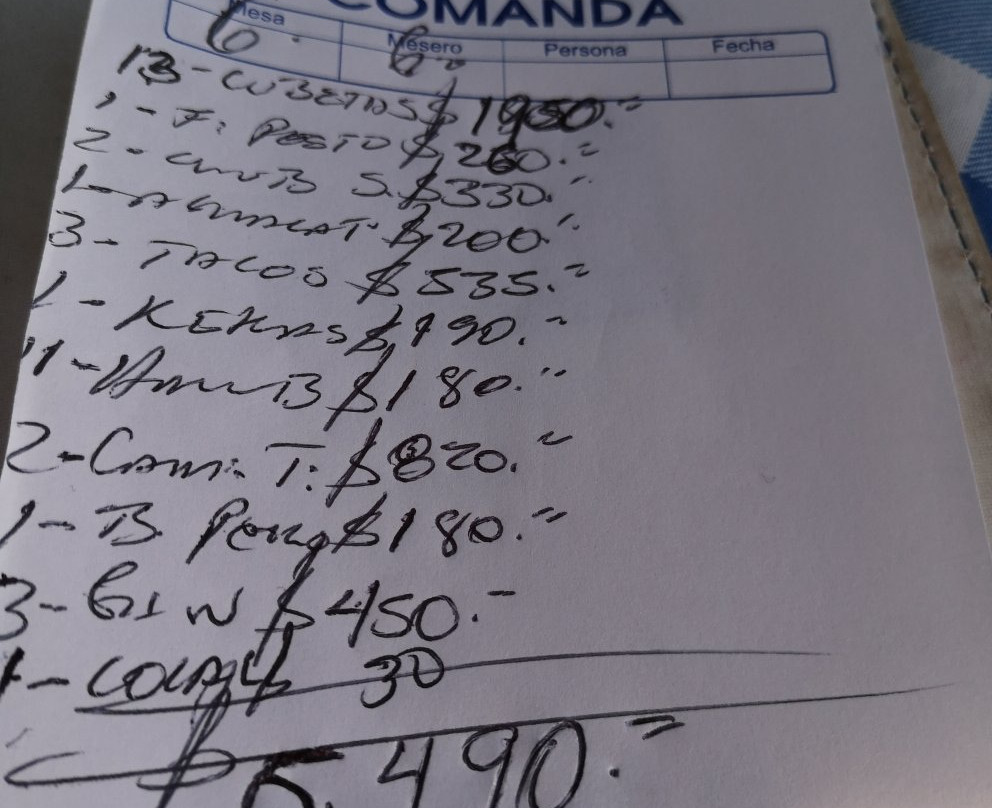 COMANDA
Mesa Mésero Persona Fecha
6 6
13 - CUBETAS $ 1950.=
1 - F. PESTO $ 260.=
2 - S. $ 330.=
1 - $ 200.=
3 - TACOS $ 535.=
1 - KEKAS $ 190.=
1 - HAMB $ 180.=
2 - Cam. T. $ 820.=
1 - B. $ 180.=
3 - GIN $ 450.-
1 - 30
$ 5.490.=